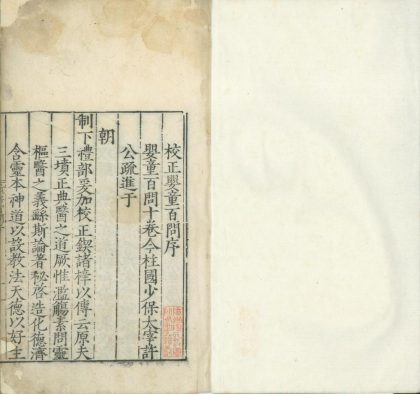 校正嬰童百問序
嬰童百問十卷今柱國少保太宰許
公疏進于
朝
制下禮部爰加校正鍥諸梓以傳云原夫
三墳正典醫之道厥惟濫觴素問靈
樞醫之義繇斯論著秘啓造化德濟
含靈本神道以設教法天德以好生